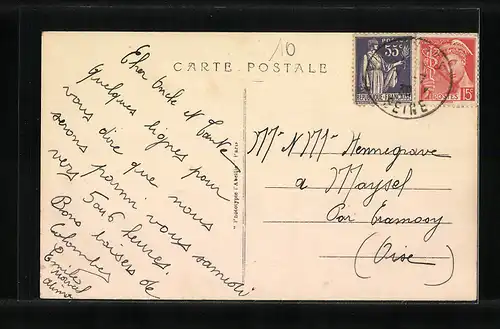 10
CARTE POSTALE
Cher Oncle et Tante
Quelques lignes pour
vous dire que nous
serons parmi vous samedi
vers 5 ou 6 heures.
Bons baisers de
Colombes
Emile
Marcel
Mr & Mme Hennegrave
a Maysel
Par Cramoisy
(Oise)
55c
POSTES
15c
SEINE